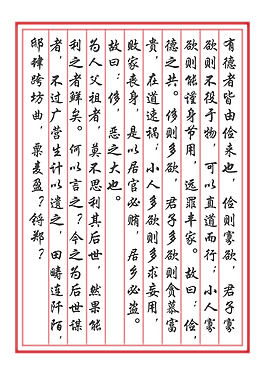 有德者皆由俭来也，俭则寡欲，君子寡
欲则不役于物，可以直道而行；小人寡
欲则能谨身节用，远罪丰家。故曰：俭，
德之共。侈则多欲，君子多欲则贪慕富
贵，在道速祸；小人多欲则多求妄用
败家丧身，是以居官必贿，居乡必盗。
故曰：侈，恶之大也。
为人父祖者，莫不思利其后世，然果能
利之者鲜矣。何以言之？今之为后世谋
者，不过广营生计以遗之，田畴连阡陌，
邸肆跨坊曲，粟麦盈？郑？